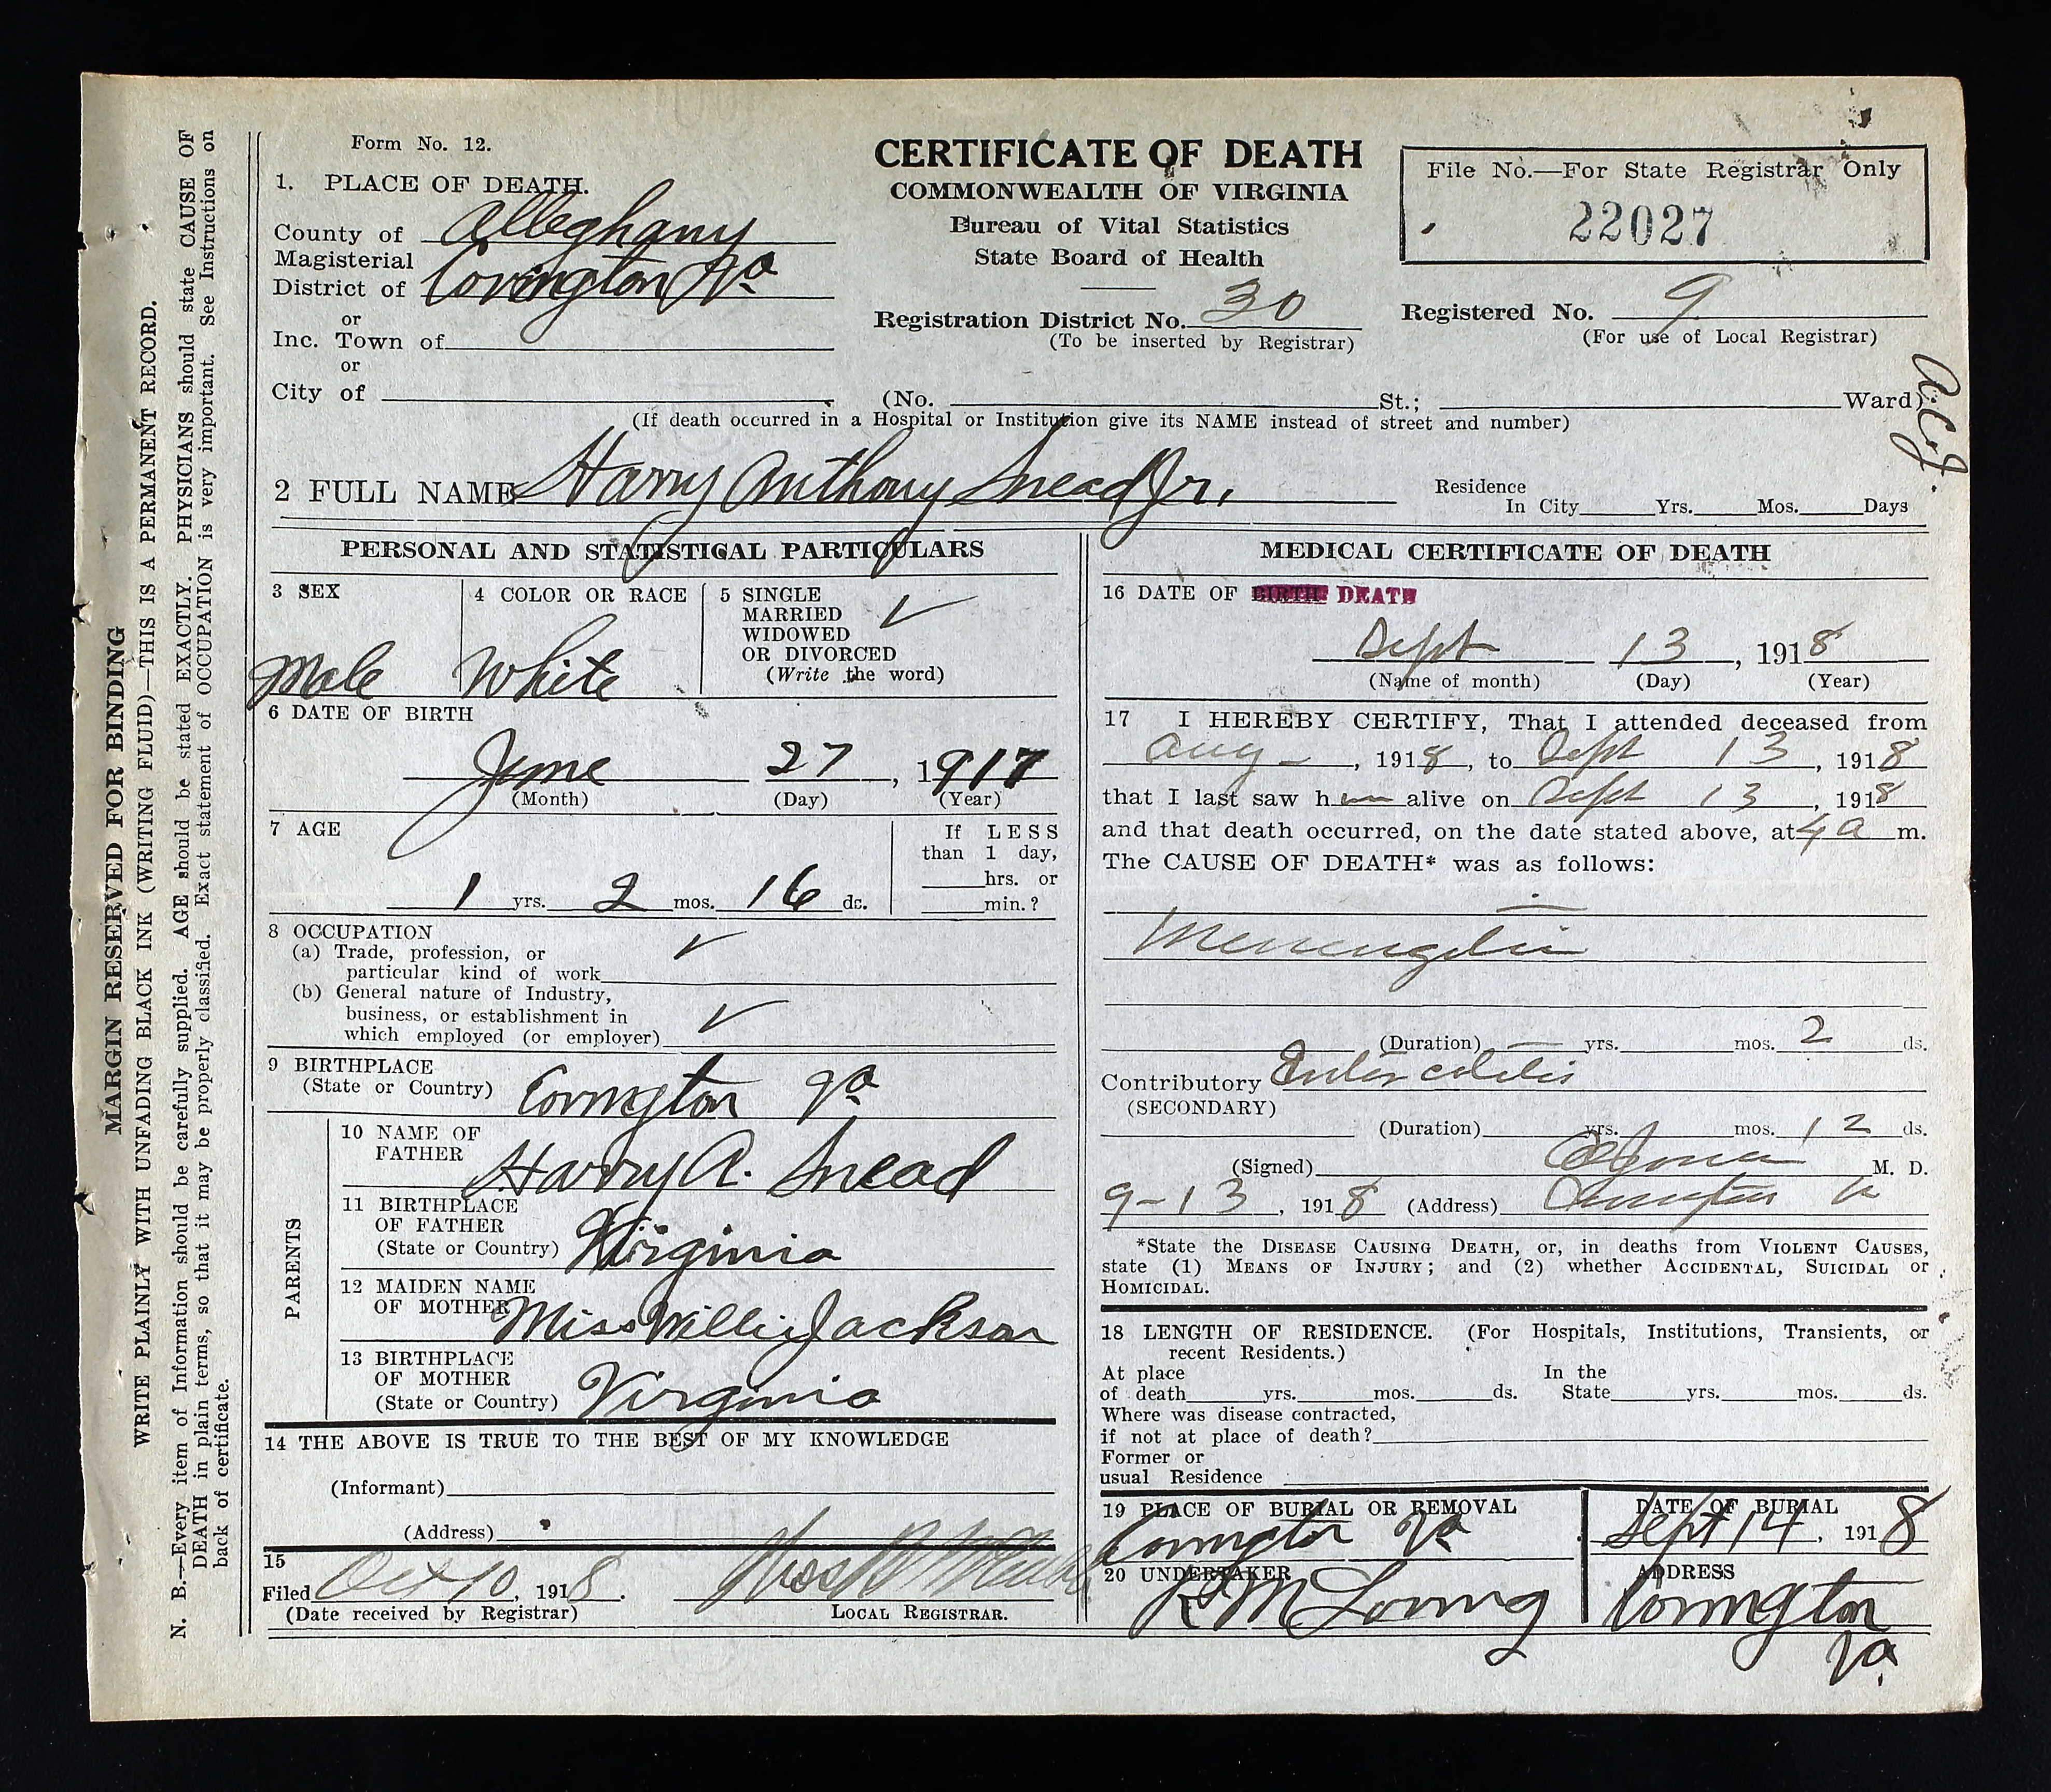 Form No. 12.
CERTIFICATE OF DEATH
COMMONWEALTH OF VIRGINIA
Bureau of Vital Statistics
State Board of Health
File No.—For State Registrar Only
22027
1. PLACE OF DEATH.
County of Alleghany
Magisterial
District of Covington Va
or
Inc. Town of
or
City of
Registration District No. 30
(To be inserted by Registrar)
Registered No. 9
(For use of Local Registrar)
(No. St.; Ward)
(If death occurred in a Hospital or Institution give its NAME instead of street and number)
2 FULL NAME Harry Anthony Snead Jr.
Residence
In City Yrs. Mos. Days
PERSONAL AND STATISTICAL PARTICULARS
3 SEX
Male
4 COLOR OR RACE
White
5 SINGLE
MARRIED
WIDOWED
OR DIVORCED
(Write the word)
✓
6 DATE OF BIRTH
June 27, 1917
(Month) (Day) (Year)
7 AGE
1 yrs. 2 mos. 16 ds.
If LESS
than 1 day,
hrs. or
min.?
8 OCCUPATION
(a) Trade, profession, or
particular kind of work ✓
(b) General nature of Industry,
business, or establishment in
which employed (or employer) ✓
9 BIRTHPLACE
(State or Country) Covington Va
PARENTS
10 NAME OF
FATHER Harry A. Snead
11 BIRTHPLACE
OF FATHER
(State or Country) Virginia
12 MAIDEN NAME
OF MOTHER Miss Willie Jackson
13 BIRTHPLACE
OF MOTHER
(State or Country) Virginia
14 THE ABOVE IS TRUE TO THE BEST OF MY KNOWLEDGE
(Informant)
(Address)
15
Filed Oct 10, 1918.
(Date received by Registrar)
LOCAL REGISTRAR.
MEDICAL CERTIFICATE OF DEATH
16 DATE OF DEATH
Sept 13, 1918
(Name of month) (Day) (Year)
17 I HEREBY CERTIFY, That I attended deceased from
Aug -, 1918, to Sept 13, 1918
that I last saw him alive on Sept 13, 1918
and that death occurred, on the date stated above, at 4 a m.
The CAUSE OF DEATH* was as follows:
Menengitis
(Duration) — yrs. mos. 2 ds.
Contributory Entero colitis
(SECONDARY)
(Duration) yrs. mos. 12 ds.
(Signed) M. D.
9-13, 1918 (Address) Covington Va
*State the DISEASE CAUSING DEATH, or, in deaths from VIOLENT CAUSES,
state (1) MEANS OF INJURY; and (2) whether ACCIDENTAL, SUICIDAL or
HOMICIDAL.
18 LENGTH OF RESIDENCE. (For Hospitals, Institutions, Transients, or
recent Residents.)
At place In the
of death yrs. mos. ds. State yrs. mos. ds.
Where was disease contracted,
if not at place of death?
Former or
usual Residence
19 PLACE OF BURIAL OR REMOVAL
Covington Va
DATE OF BURIAL
Sept 14, 1918
20 UNDERTAKER
M Loving
ADDRESS
Covington
Va.
MARGIN RESERVED FOR BINDING
WRITE PLAINLY WITH UNFADING BLACK INK (WRITING FLUID)—THIS IS A PERMANENT RECORD.
N. B.—Every item of Information should be carefully supplied. AGE should be stated EXACTLY. PHYSICIANS should state CAUSE OF
DEATH in plain terms, so that it may be properly classified. Exact statement of OCCUPATION is very important. See Instructions on
back of certificate.